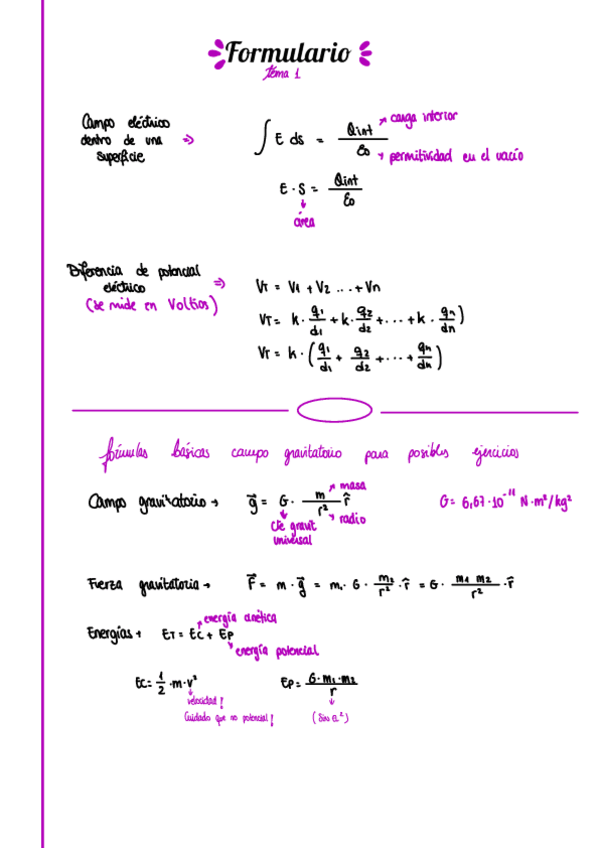 Formulario
tema 1
Campo eléctrico
dentro de una
superficie
⇒
∫ E ds = Qint / ε0
carga interior
permitividad en el vacío
E · S = Qint / ε0
área
Diferencia de potencial
eléctrico
(se mide en Voltios)
⇒
VT = V1 + V2 ... + Vn
VT = k · q1/d1 + k · q2/d2 + ... + k · qn/dn )
VT = k · ( q1/d1 + q2/d2 + ... + qn/dn )
fórmulas básicas campo gravitatorio para posibles ejercicios
Campo gravitatorio → g⃗ = G · m/r² r̂
masa
radio
Cte gravit
universal
G = 6,67 · 10⁻¹¹ N·m²/kg²
Fuerza gravitatoria → F⃗ = m · g⃗ = m1 · G · m2/r² · r̂ = G · m1 m2/r² · r̂
Energías → ET = EC + EP
energía cinética
energía potencial
EC = 1/2 · m · v²
velocidad!
Cuidado que no potencial!
EP = G · m1 · m2 / r
(Sin el ²)